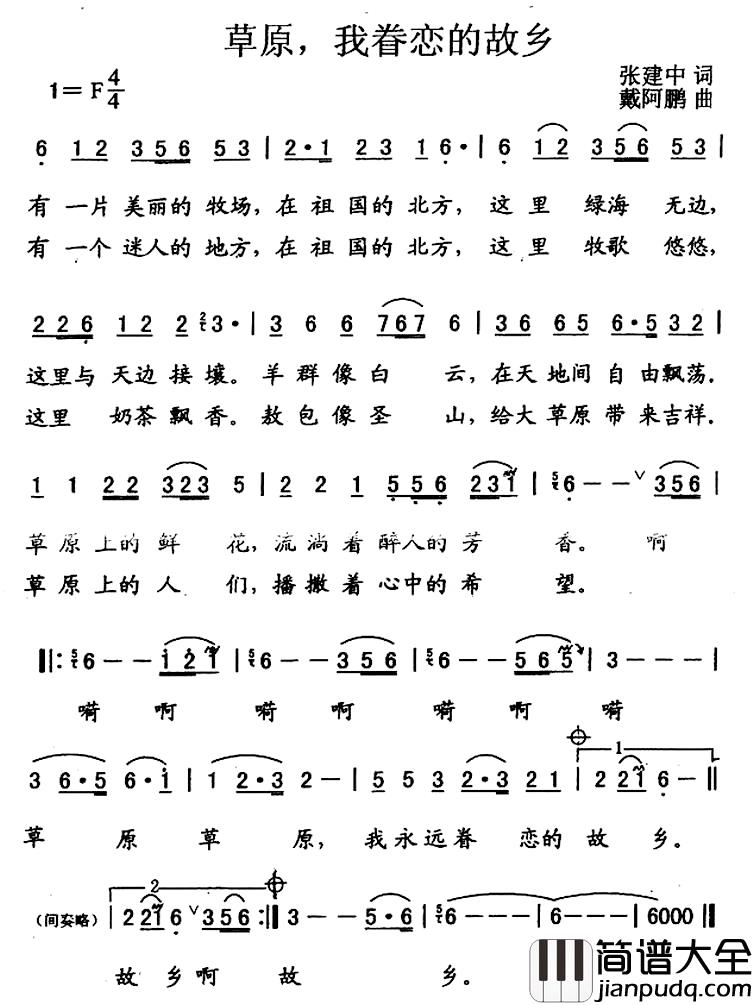 草原，我眷恋的故乡
1=F 4/4
张建中 词
戴阿鹏 曲
6 12 356 53 | 2·1 23 1 6· | 6 12 356 53 |
有一片美丽的牧场，在祖国的北方，这里绿海无边，
有一个迷人的地方，在祖国的北方，这里牧歌悠悠，
226 12 2 3· | 3 6 6 767 6 | 36 65 6·5 32 |
这里与天边接壤。羊群像白云，在天地间自由飘荡.
这里奶茶飘香。敖包像圣山，给大草原带来吉祥.
1 1 22 323 5 | 2 2 1 556 231 | 6 - - ∨ 356 |
草原上的鲜花，流淌着醉人的芳香。啊
草原上的人们，播撒着心中的希望。
‖: 6 - - 121 | 6 - - 356 | 6 - - 565 | 3 - - - |
嗬啊嗬啊嗬啊嗬
3 6·5 6·1 | 1 2·3 2 - | 5 5 3 2·3 21 | 2 21 6 - ‖
1
草原草原，我永远眷恋的故乡。
2
（间奏略） | 2 21 6 ∨ 356 :‖ 3 - - 5·6 | 6 - - - | 6 - - - | 6000 ‖
故乡啊故乡。
简谱大全
jianpudq.com